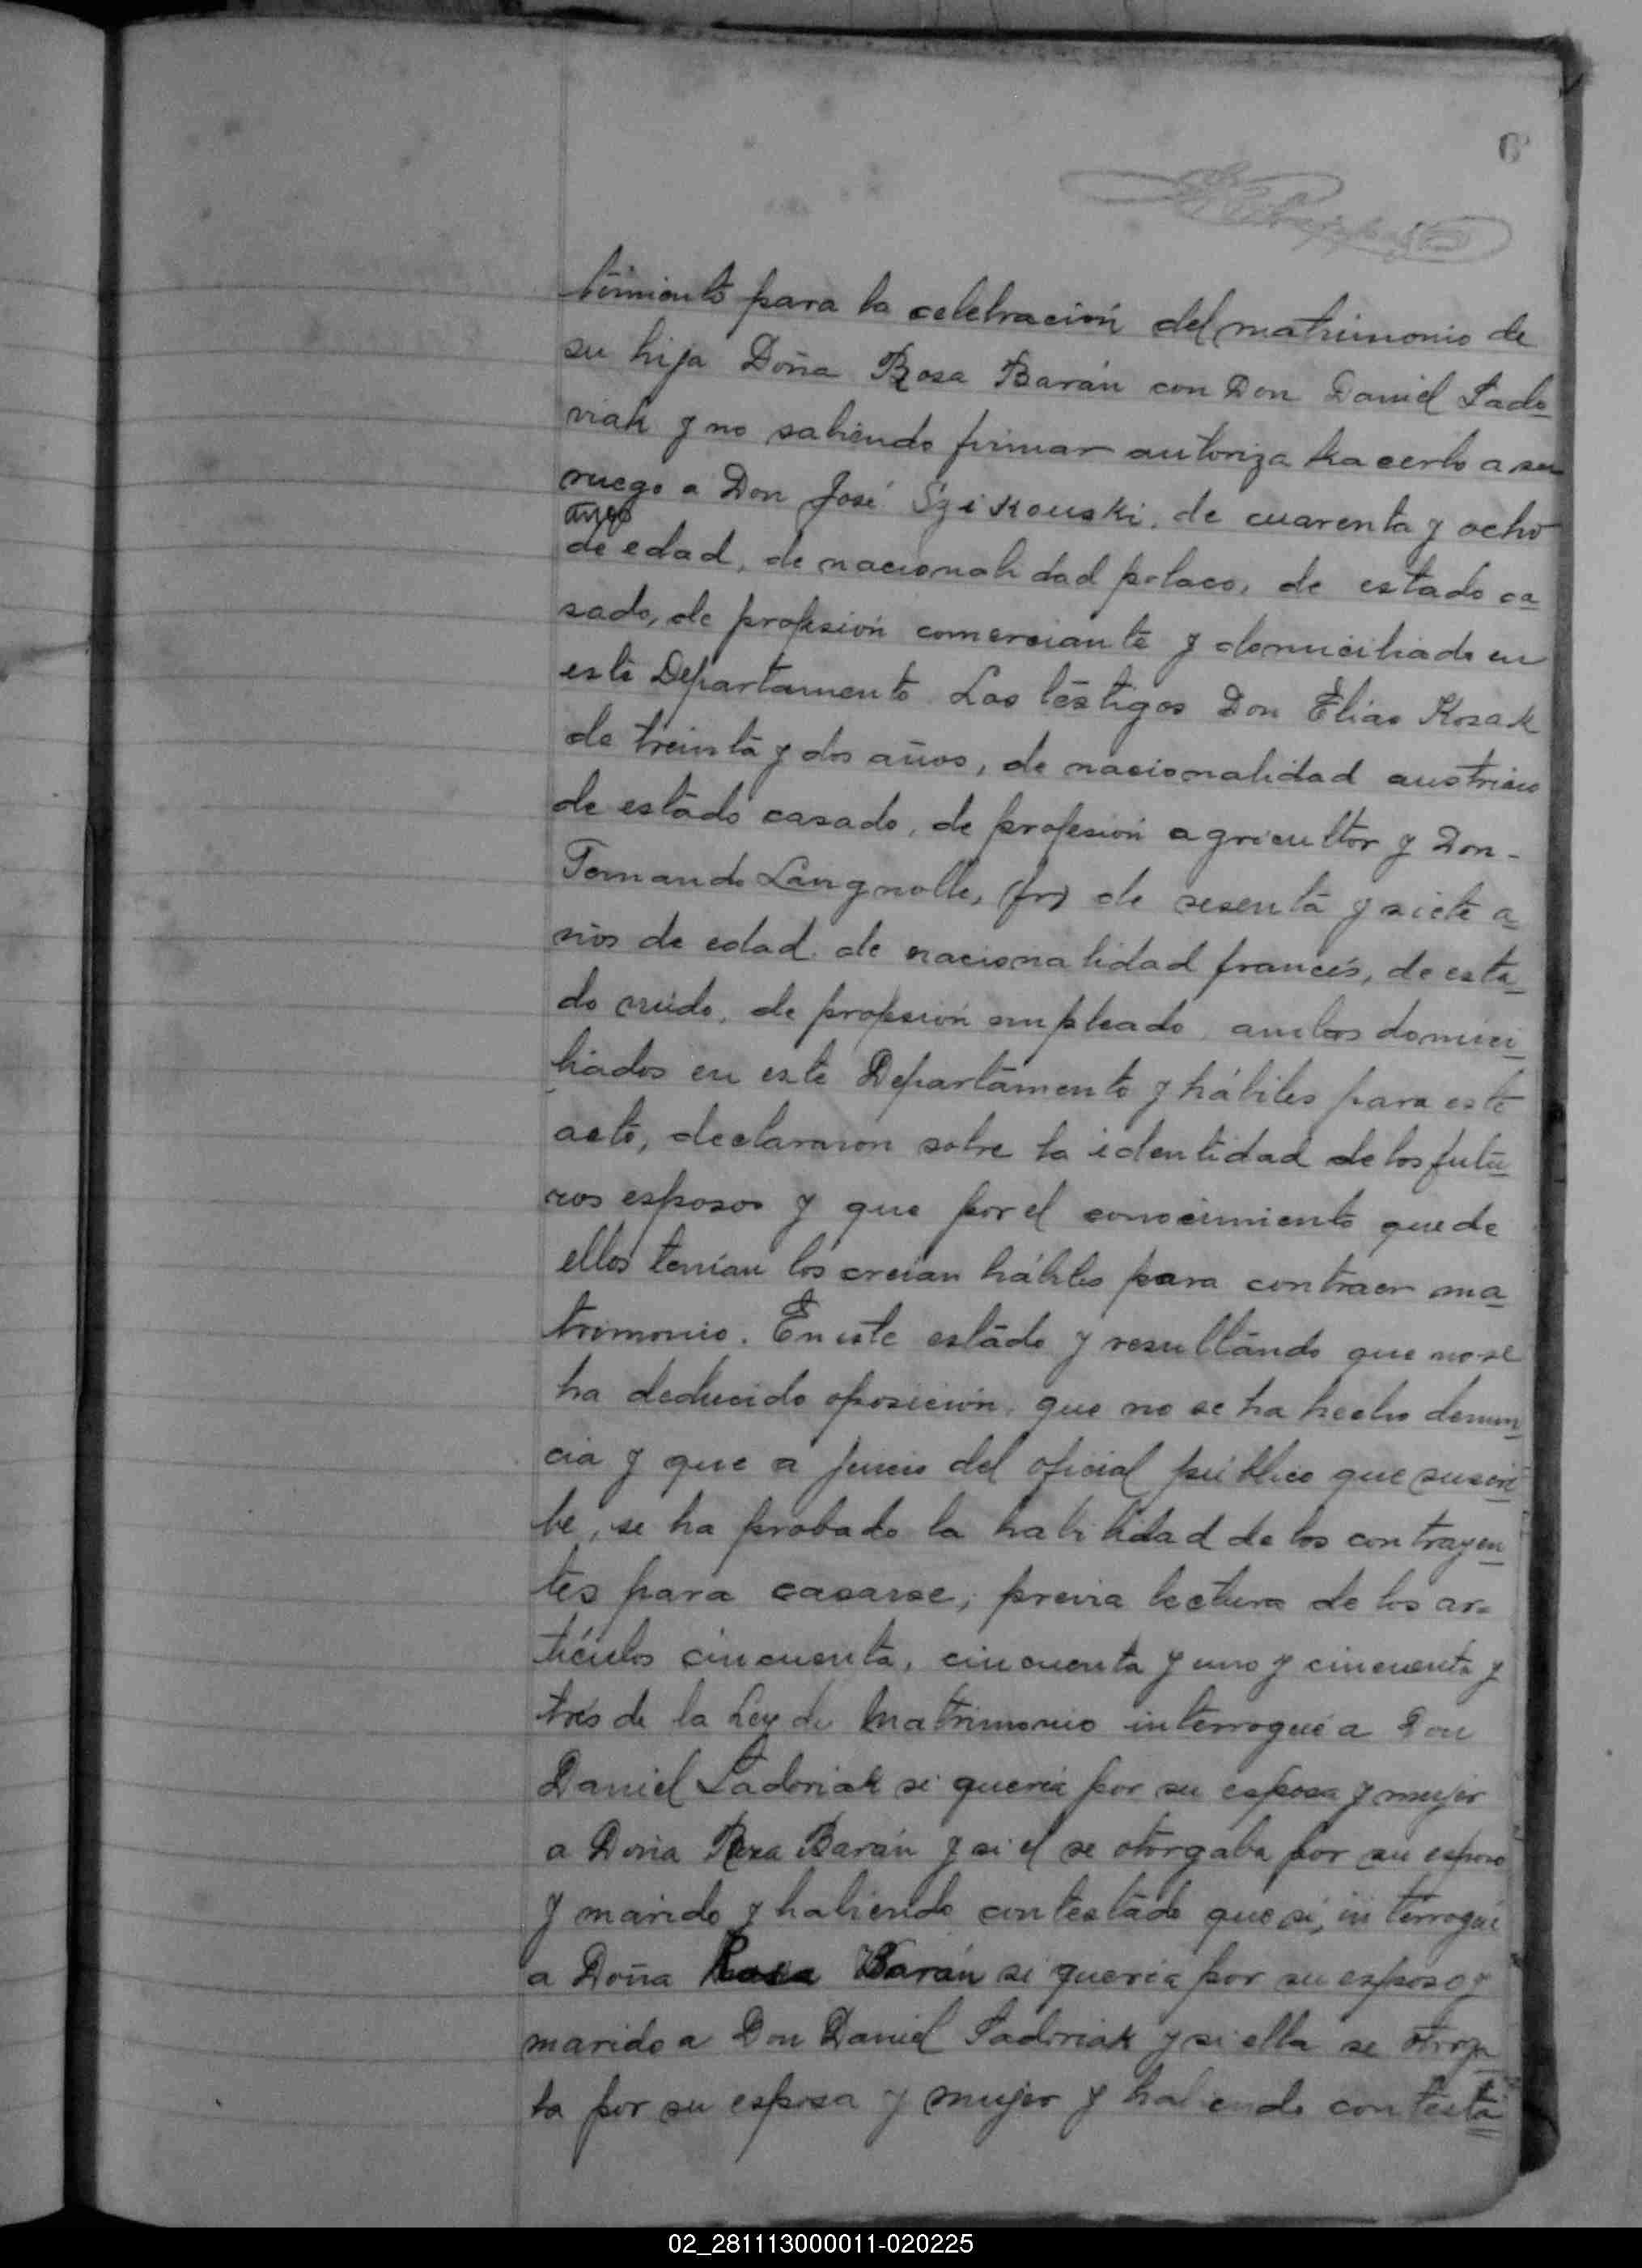 6
timiento para la celebración del matrimonio de
su hija Doña Rosa Barán con Don Daniel Sado
viak y no sabiendo firmar autoriza hacerlo a su
ruego a Don José Szikouski, de cuarenta y ocho
años
de edad, de nacionalidad polaco, de estado ca
sado, de profesión comerciante y domiciliado en
este Departamento. Los testigos Don Elías Kozak
de treinta y dos años, de nacionalidad austriaco
de estado casado, de profesión agricultor y Don-
Fernando Langnolle, (fr) de sesenta y siete a
ños de edad, de nacionalidad francés, de esta
do viudo, de profesión empleado, ambos domici
liados en este Departamento y hábiles para este
acto, declararon sobre la identidad de los futu
ros esposos y que por el conocimiento que de
ellos tenían los creían hábiles para contraer ma
trimonio. En este estado y resultando que no se
ha deducido oposición, que no se ha hecho denun
cia y que a juicio del oficial público que suscri
be, se ha probado la habilidad de los contrayen
tes para casarse, previa lectura de los ar-
tículos cincuenta, cincuenta y uno y cincuenta y
tres de la Ley de Matrimonio interrogué a Don
Daniel Sadoviak si quería por su esposa y mujer
a Doña Rosa Barán y si el se otorgaba por su esposo
y marido y habiendo contestado que si, interrogué
a Doña Rosa Barán si quería por su esposo y
marido a Don Daniel Sadoviak y si ella se otorga
ba por su esposa y mujer y habiendo contesta
02_281113000011-020225